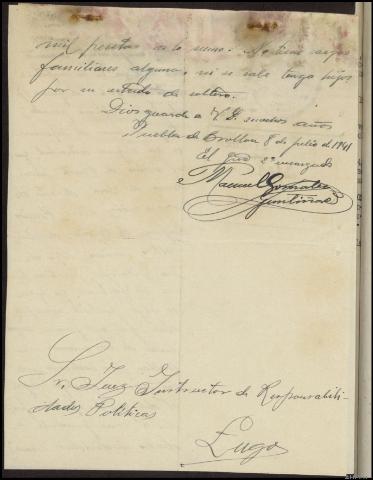 mil pesetas a lo sumo. No tiene cargos
familiares alguno, ni se sabe tenga hijos
por su estado de soltero.
Dios guarde a V.S. muchos años
Puebla de Brollon 8 de julio de 1941
El Guardia 2º encargado
Manuel González
Sr. Juez Instructor de Responsabili-
dades Politicas
Lugo